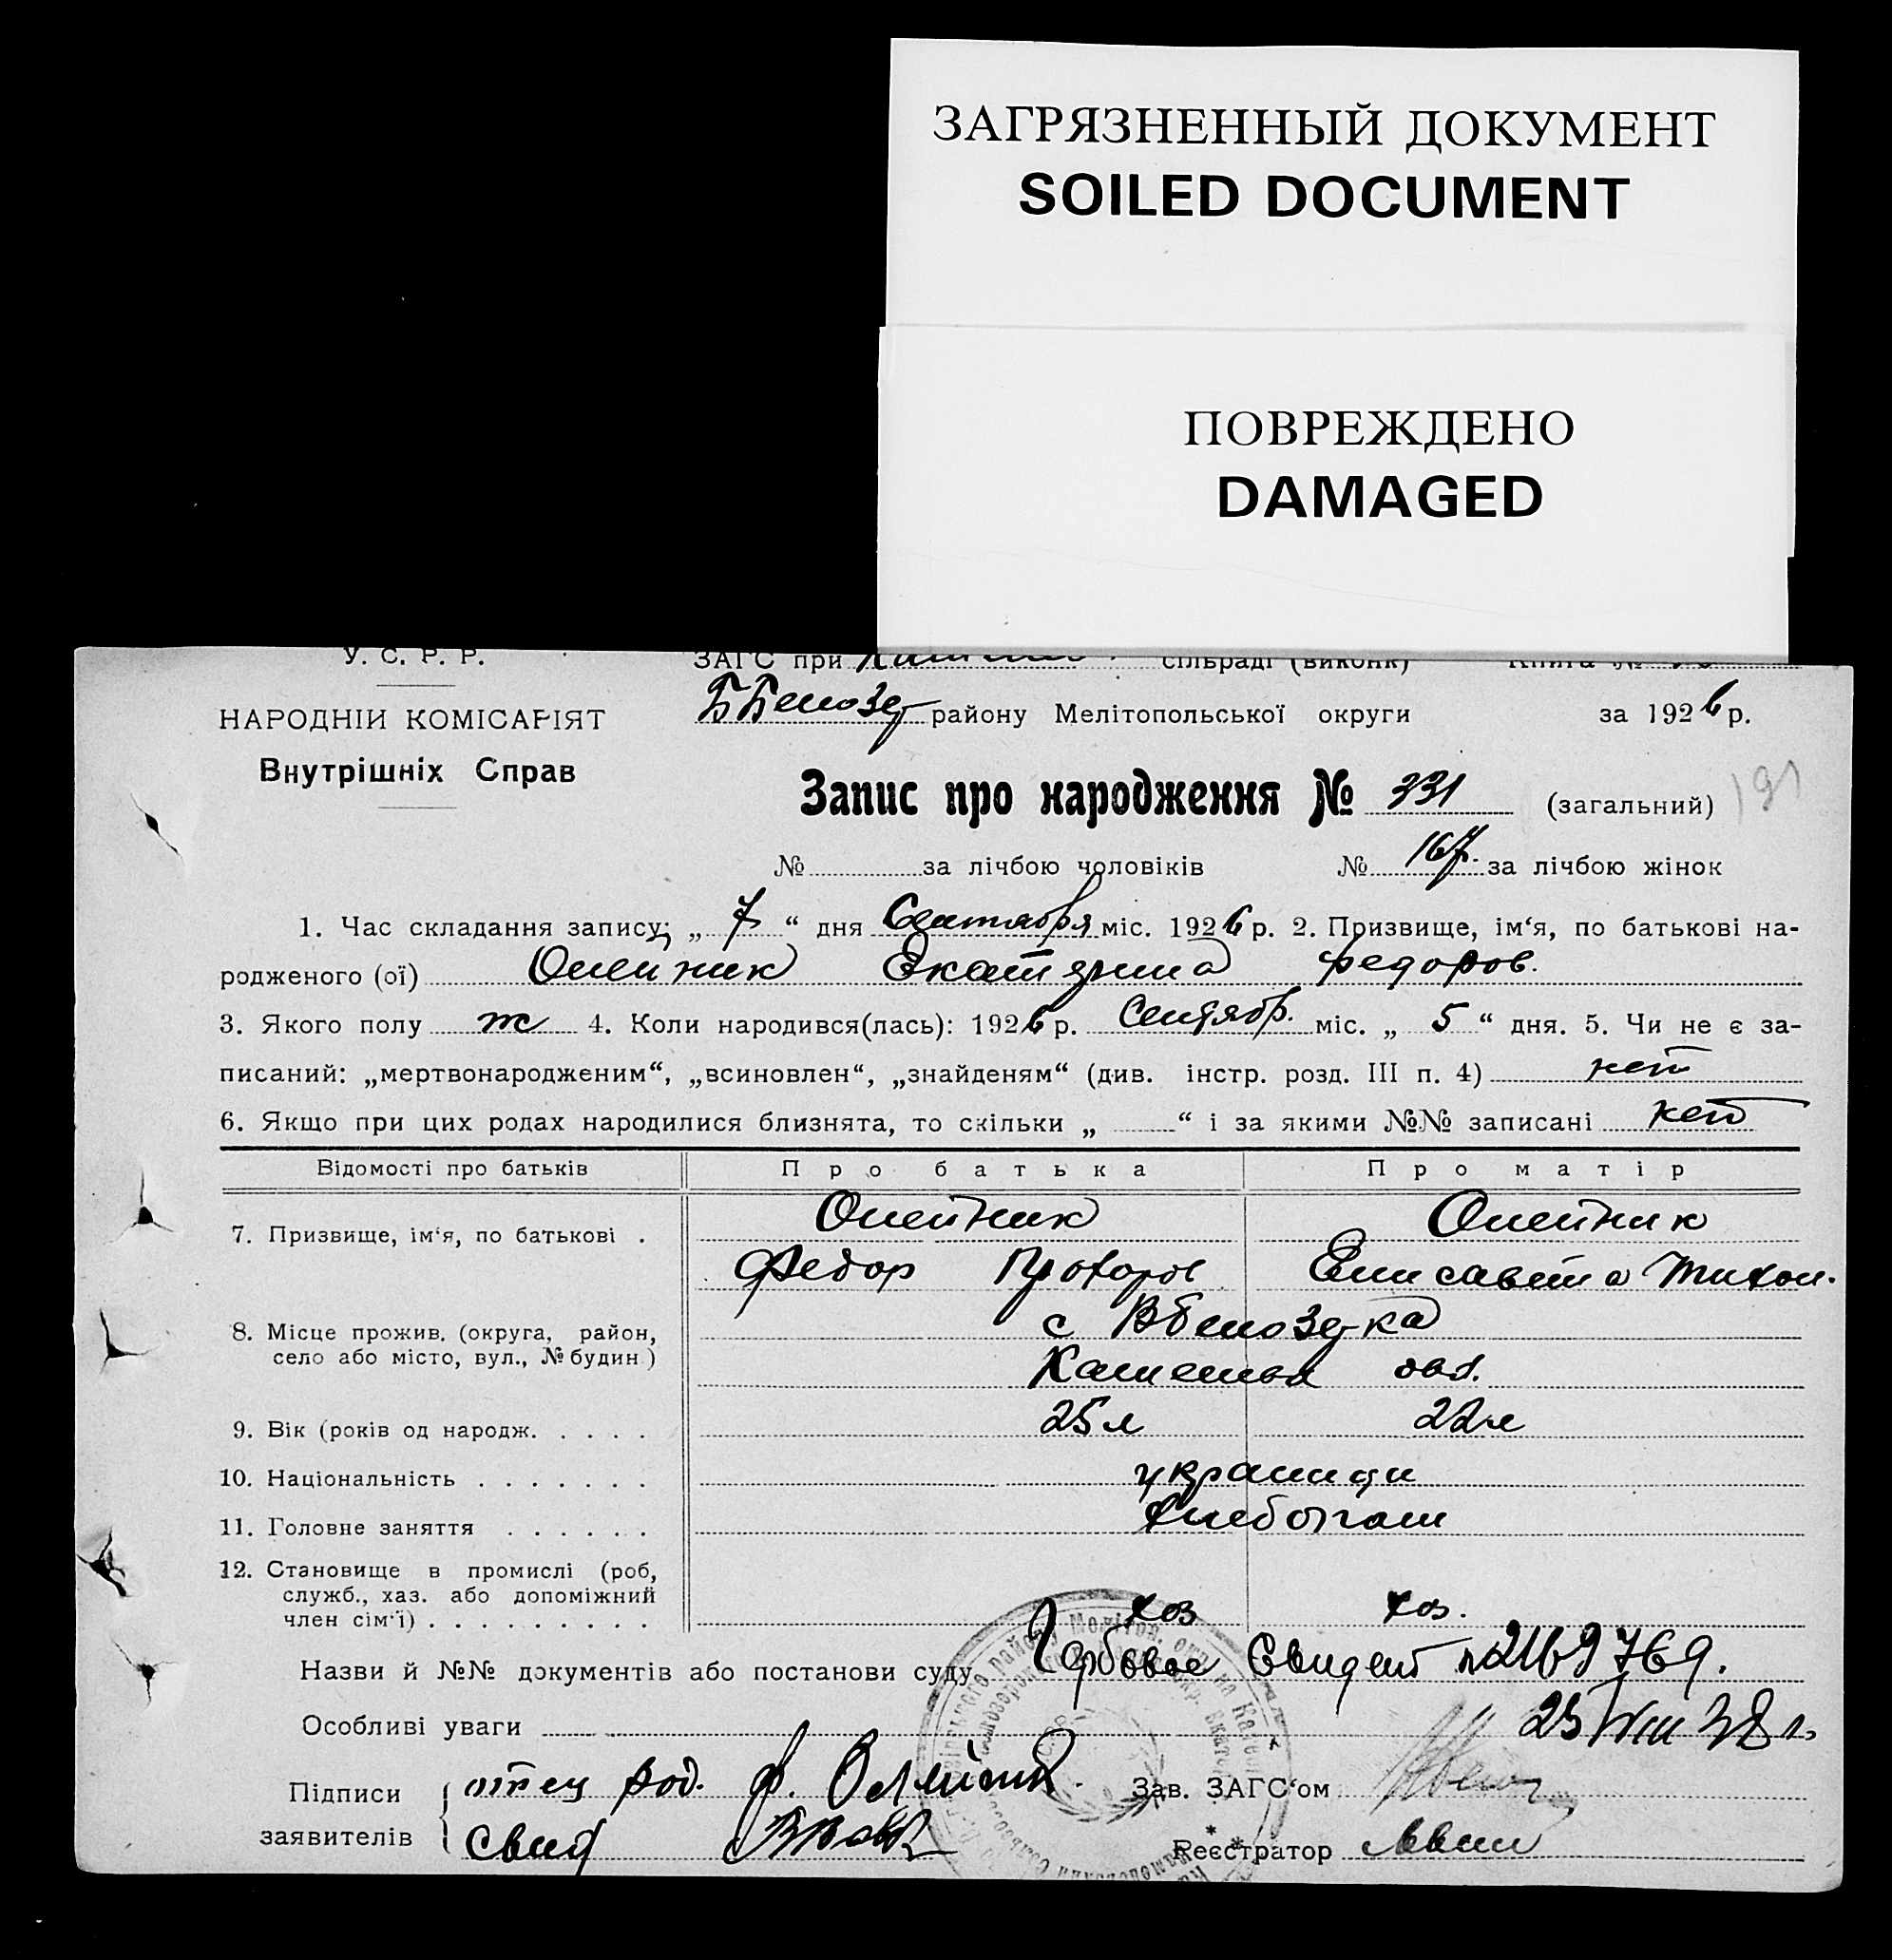 ЗАГРЯЗНЕННЫЙ ДОКУМЕНТ
SOILED DOCUMENT
ПОВРЕЖДЕНО
DAMAGED
У. С. Р. Р.
ЗАГС при сільраді (виконк) Книга №
НАРОДНІЙ КОМІСАРІЯТ
району Мелітопольської округи за 1926 р.
Внутрішніх Справ
Запис про народження № 331 (загальний) 191
№ за лічбою чоловіків № 167. за лічбою жінок
1. Час складання запису; „ 7 “ дня Сентября міс. 1926 р. 2. Призвище, ім‘я, по батькові на-
родженого (ої) Олейник Екатерина Федоров.
3. Якого полу ж 4. Коли народився(лась): 1926 р. Сентябр. міс. „ 5 “ дня. 5. Чи не є за-
писаний: „мертвонародженим“, „всиновлен“, „знайденям“ (див. інстр. розд. III п. 4) нет
6. Якщо при цих родах народилися близнята, то скільки „ “ і за якими №№ записані нет
Відомості про батьків Про батька Про матір
7. Призвище, ім‘я, по батькові . Олейник Олейник
Федор Прохоров Елисавета Тихон.
8. Місце прожив. (округа, район, с Вбелозерка
село або місто, вул., № будин.)
9. Вік (років од народж. . . . . 25 л 22 л
10. Національність . . . . . . . украинци
11. Головне заняття . . . . . . хлебопаш
12. Становище в промислі (роб,
служб., хаз. або допоміжний
член сім‘ї) . . . . . . . . . хоз хоз.
Назви й №№ документів або постанови суду Гербовое Свидет №2169769.
Особливі уваги 25/VIII 38 г.
Підписи отец род. Ф. Олейник. Зав. ЗАГС‘ом
заявителів свид Реєстратор